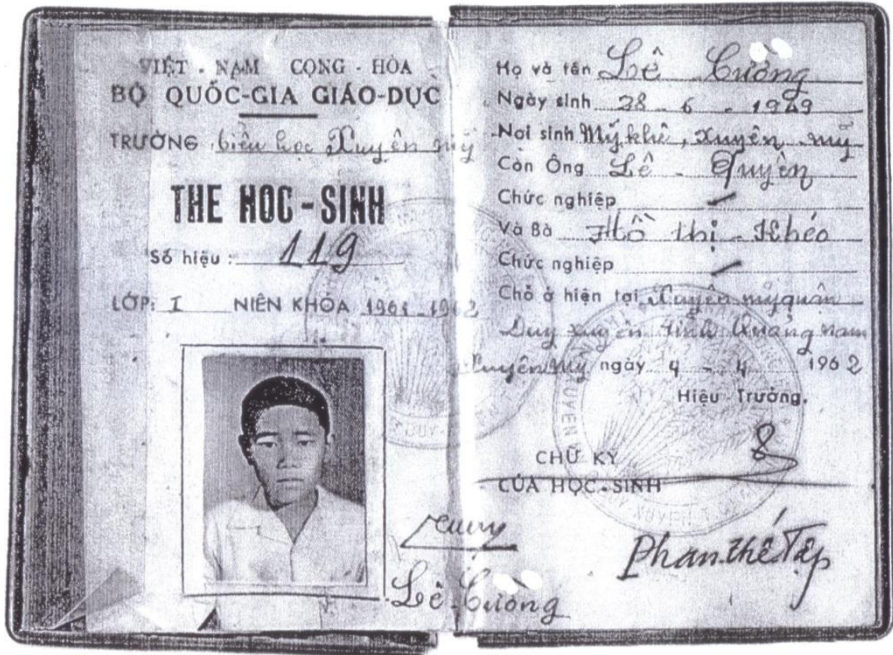 VIỆT - NAM CỘNG - HÒA
BỘ QUỐC-GIA GIÁO-DỤC
TRƯỜNG tiểu học Xuyên mỹ
THE HOC - SINH
Số hiệu : 119
LỚP: I NIÊN KHÓA 1961 1962
Lê Cường
Họ và tên Lê Cường
Ngày sinh 28 - 6 - 1949
Nơi sinh Mỹ khê, Xuyên mỹ
Còn Ông Lê - Quyên
Chức nghiệp
Và Bà Hồ thị - Khéo
Chức nghiệp
Chỗ ở hiện tại Xuyên mỹ quận
Duy xuyên tỉnh Quảng nam
Xuyên Mỹ ngày 4 - 4 1962
Hiệu Trưởng.
CHỮ KÝ
CỦA HỌC-SINH
Phan thế Tập